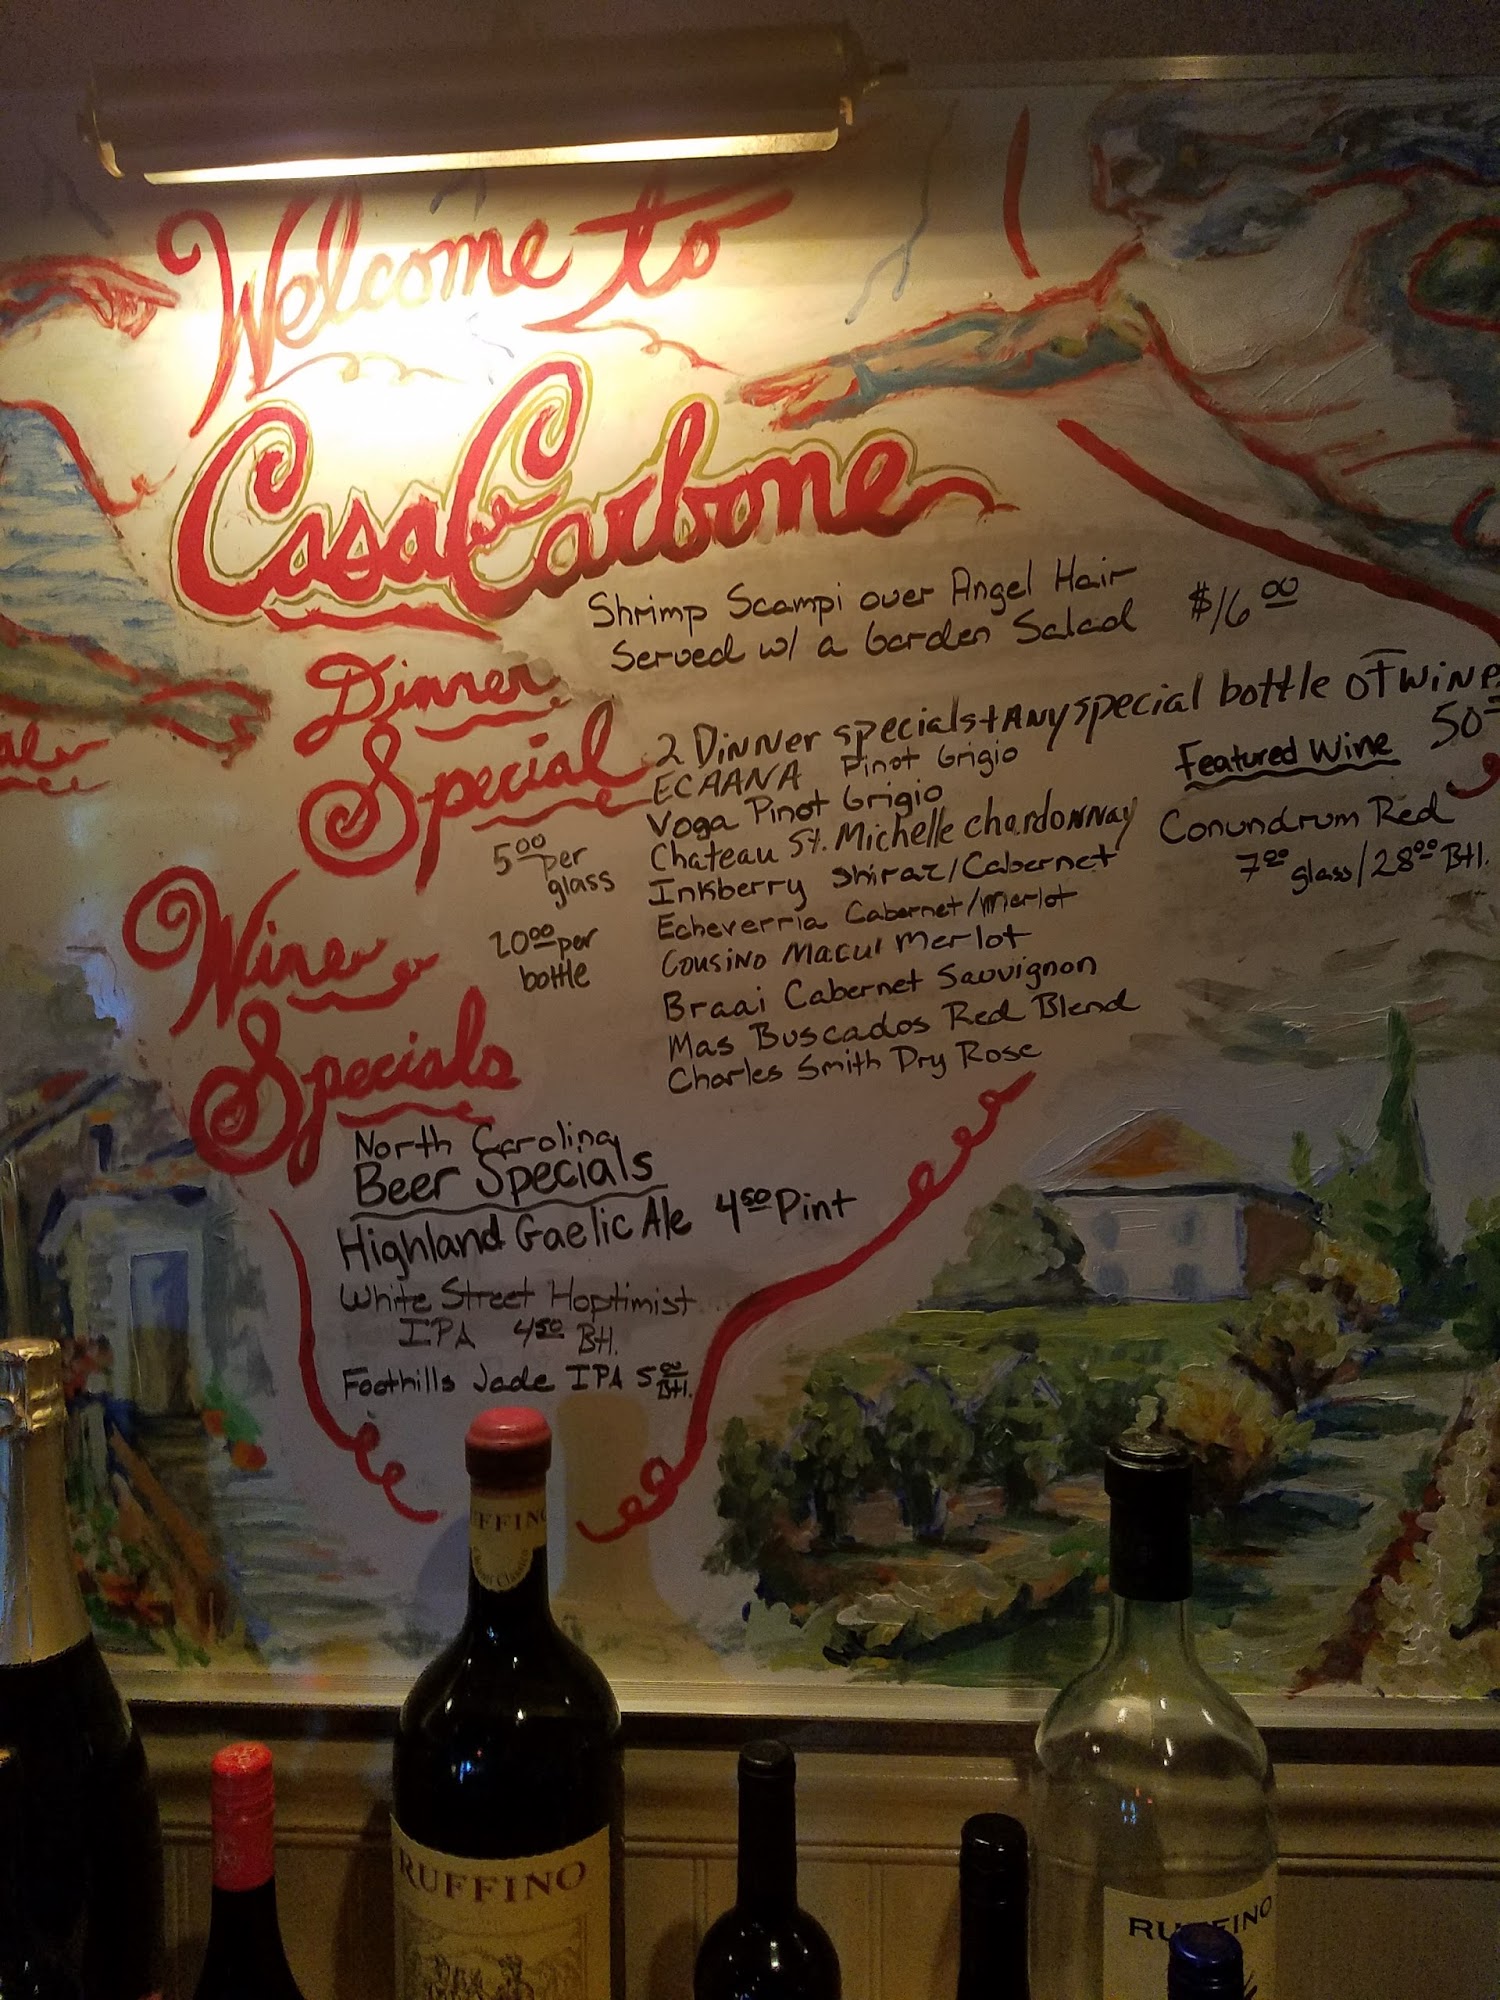 Welcome to
Casa Carbone
Dinner
Special
Shrimp Scampi over Angel Hair
Served w/ a Garden Salad $16.00
2 Dinner specials + Any special bottle of wine
50
Wine
Specials
5.00 per
glass
20.00 per
bottle
ECAANA Pinot Grigio
Voga Pinot Grigio
Chateau St. Michelle Chardonnay
Inkberry Shiraz/Cabernet
Echeverria Cabernet/Merlot
Cousino Macul Merlot
Braai Cabernet Sauvignon
Mas Buscados Red Blend
Charles Smith Dry Rose
Featured Wine
Conundrum Red
7.00 glass/28.00 Btl.
North Carolina
Beer Specials
Highland Gaelic Ale 4.50 Pint
White Street Hoptimist
IPA 4.50 Btl.
Foothills Jade IPA 5.00 Btl.
RUFFINO
RUFFINO